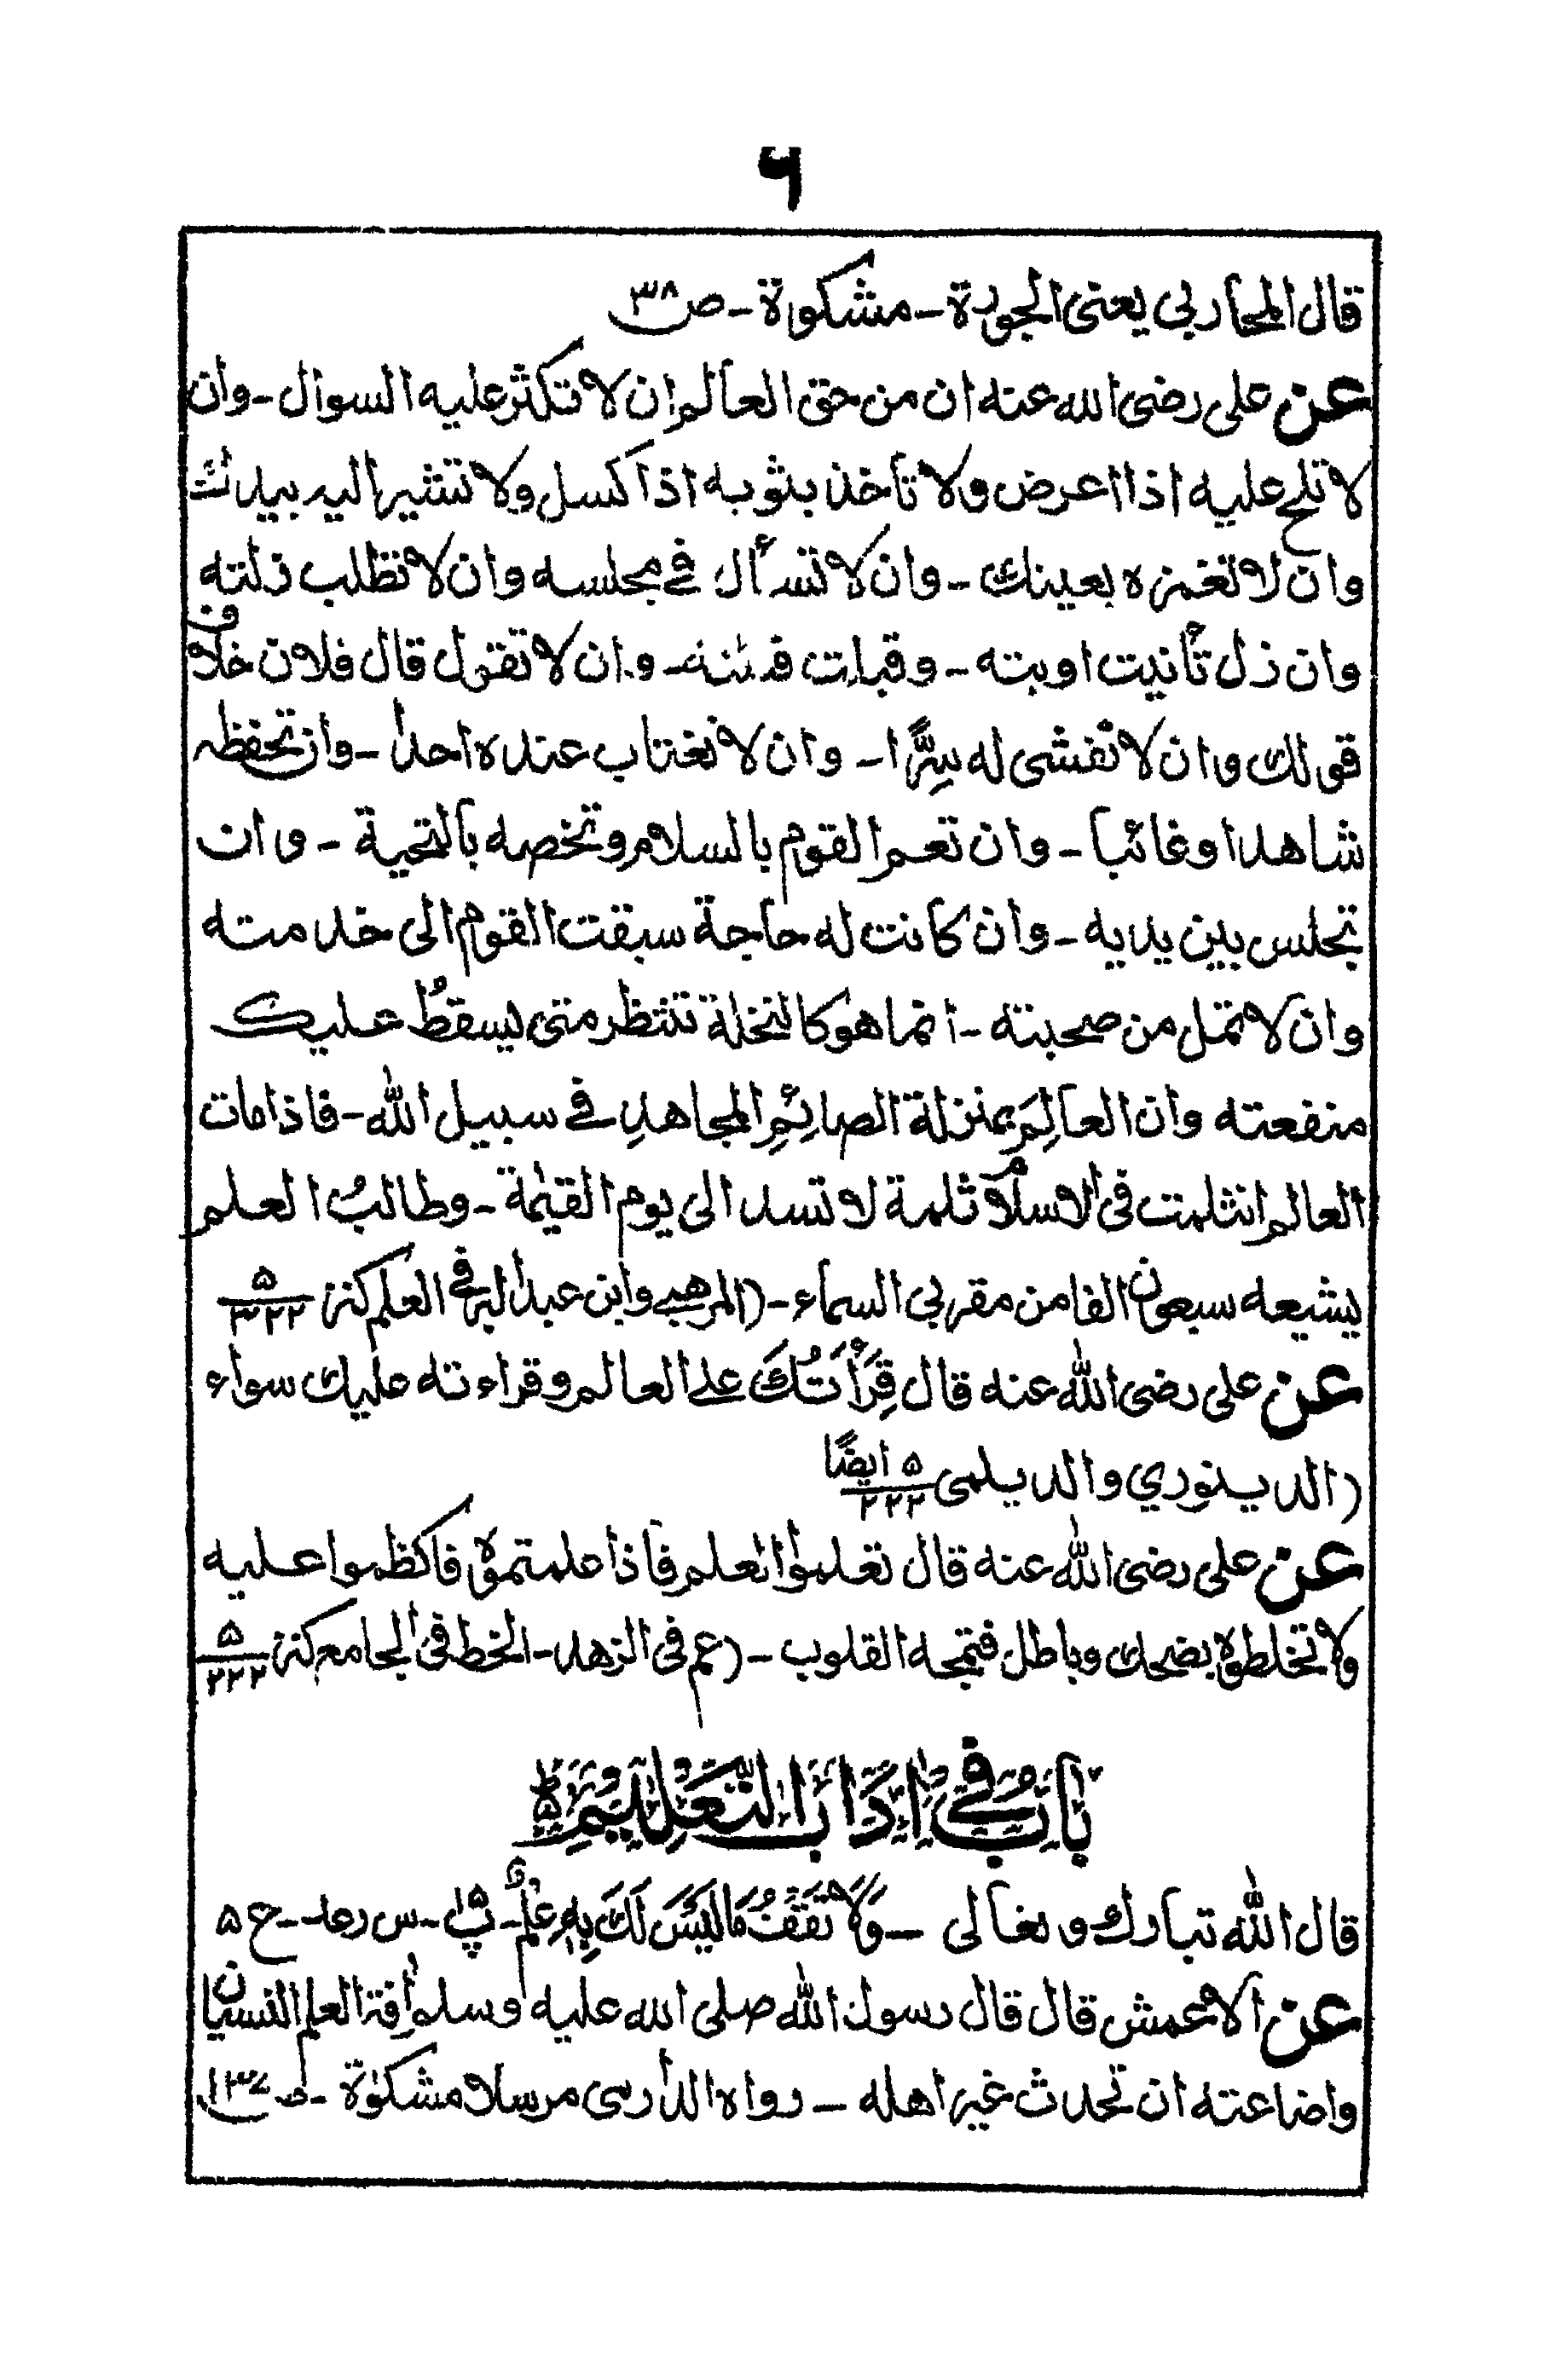 ٦
قال المحاربي يعنى الجودة ـ مشكوة ـ ص ٣٨
عن على رضى الله عنه ان من حق العالم ان لا تكثر عليه السوال ـ وان
لا تلح عليه اذا اعرض ولا تأخذ بثوبه اذا كسل ولا تشير اليه بيدك
وان لا تغمزه بعينك ـ وان لا تسأل فى مجلسه وان لا تطلب زلته
وان زل تأنيت اوبته ـ وقبلت فيئته ـ وان لا تقول قال فلان خلاف
قولك وان لا تفشى له سرًّا ـ وان لا تغتاب عنده احدا ـ وان تحفظه
شاهدا وغائبا ـ وان تعم القوم بالسلام وتخصه بالتحية ـ وان
تجلس بين يديه ـ وان كانت له حاجة سبقت القوم الى خدمته
وان لا تمل من صحبته ـ انما هو كالنخلة تنتظر متى يسقطُ عليك
منفعته وان العالِمَ بمنزلة الصائِمِ المجاهدِ فى سبيل الله ـ فاذا مات
العالم انثلمت فى الاسلام ثلمة لا تسد الى يوم القيٰمة ـ وطالبُ العلم
يشيعه سبعون الفا من مقربي السماء ـ (المرهبي وابن عبد البر فى العلم كنز ۵/٣٢٢
عن على رضى الله عنه قال قِرَأَتُكَ على العالم وقراءته عليك سواء
(الدينوري والديلمى ۵/٢٢٢ ايضًا
عن على رضى الله عنه قال تعلموا العلم فاذا علمتموه فاكظموا عليه
ولا تخلطوه بضحك وباطل فتمجه القلوب ـ (عم فى الزهد ـ الخط فى الجامع كنز ۵/٢٢٢
بَابٌ فِي اٰدَابِ التَّعْلِيْمِ
قال الله تبارك وتعالى ـ وَلَا تَقْفُ مَا لَيْسَ لَكَ بِهٖ عِلْمٌ ـ پ ١۵ ـ س رعد ـ ح ۵
عن الاعمش قال قال رسول الله صلى الله عليه وسلم اٰفة العلم النسيان
واضاعته ان تحدث غير اهله ـ رواه الدارمى مرسلا مشكوٰة ـ ص ٣٧